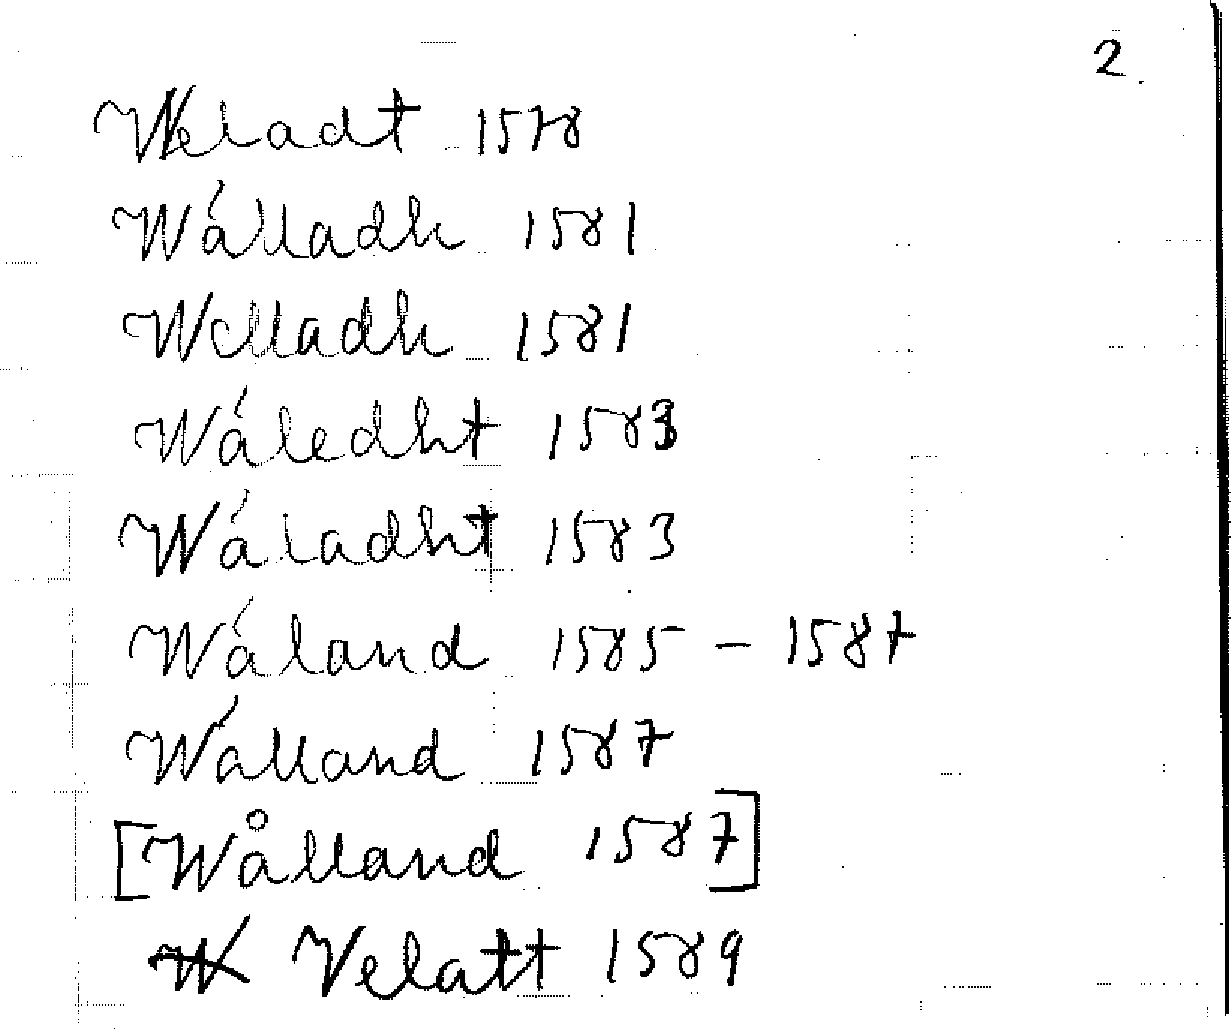 2.
Weladt 1578
Wálladh 1581
Welladh 1581
Wáledht 1583
Wáladht 1583
Wáland 1585 – 1587
Wálland 1587
[Wålland 1587]
Velatt 1589